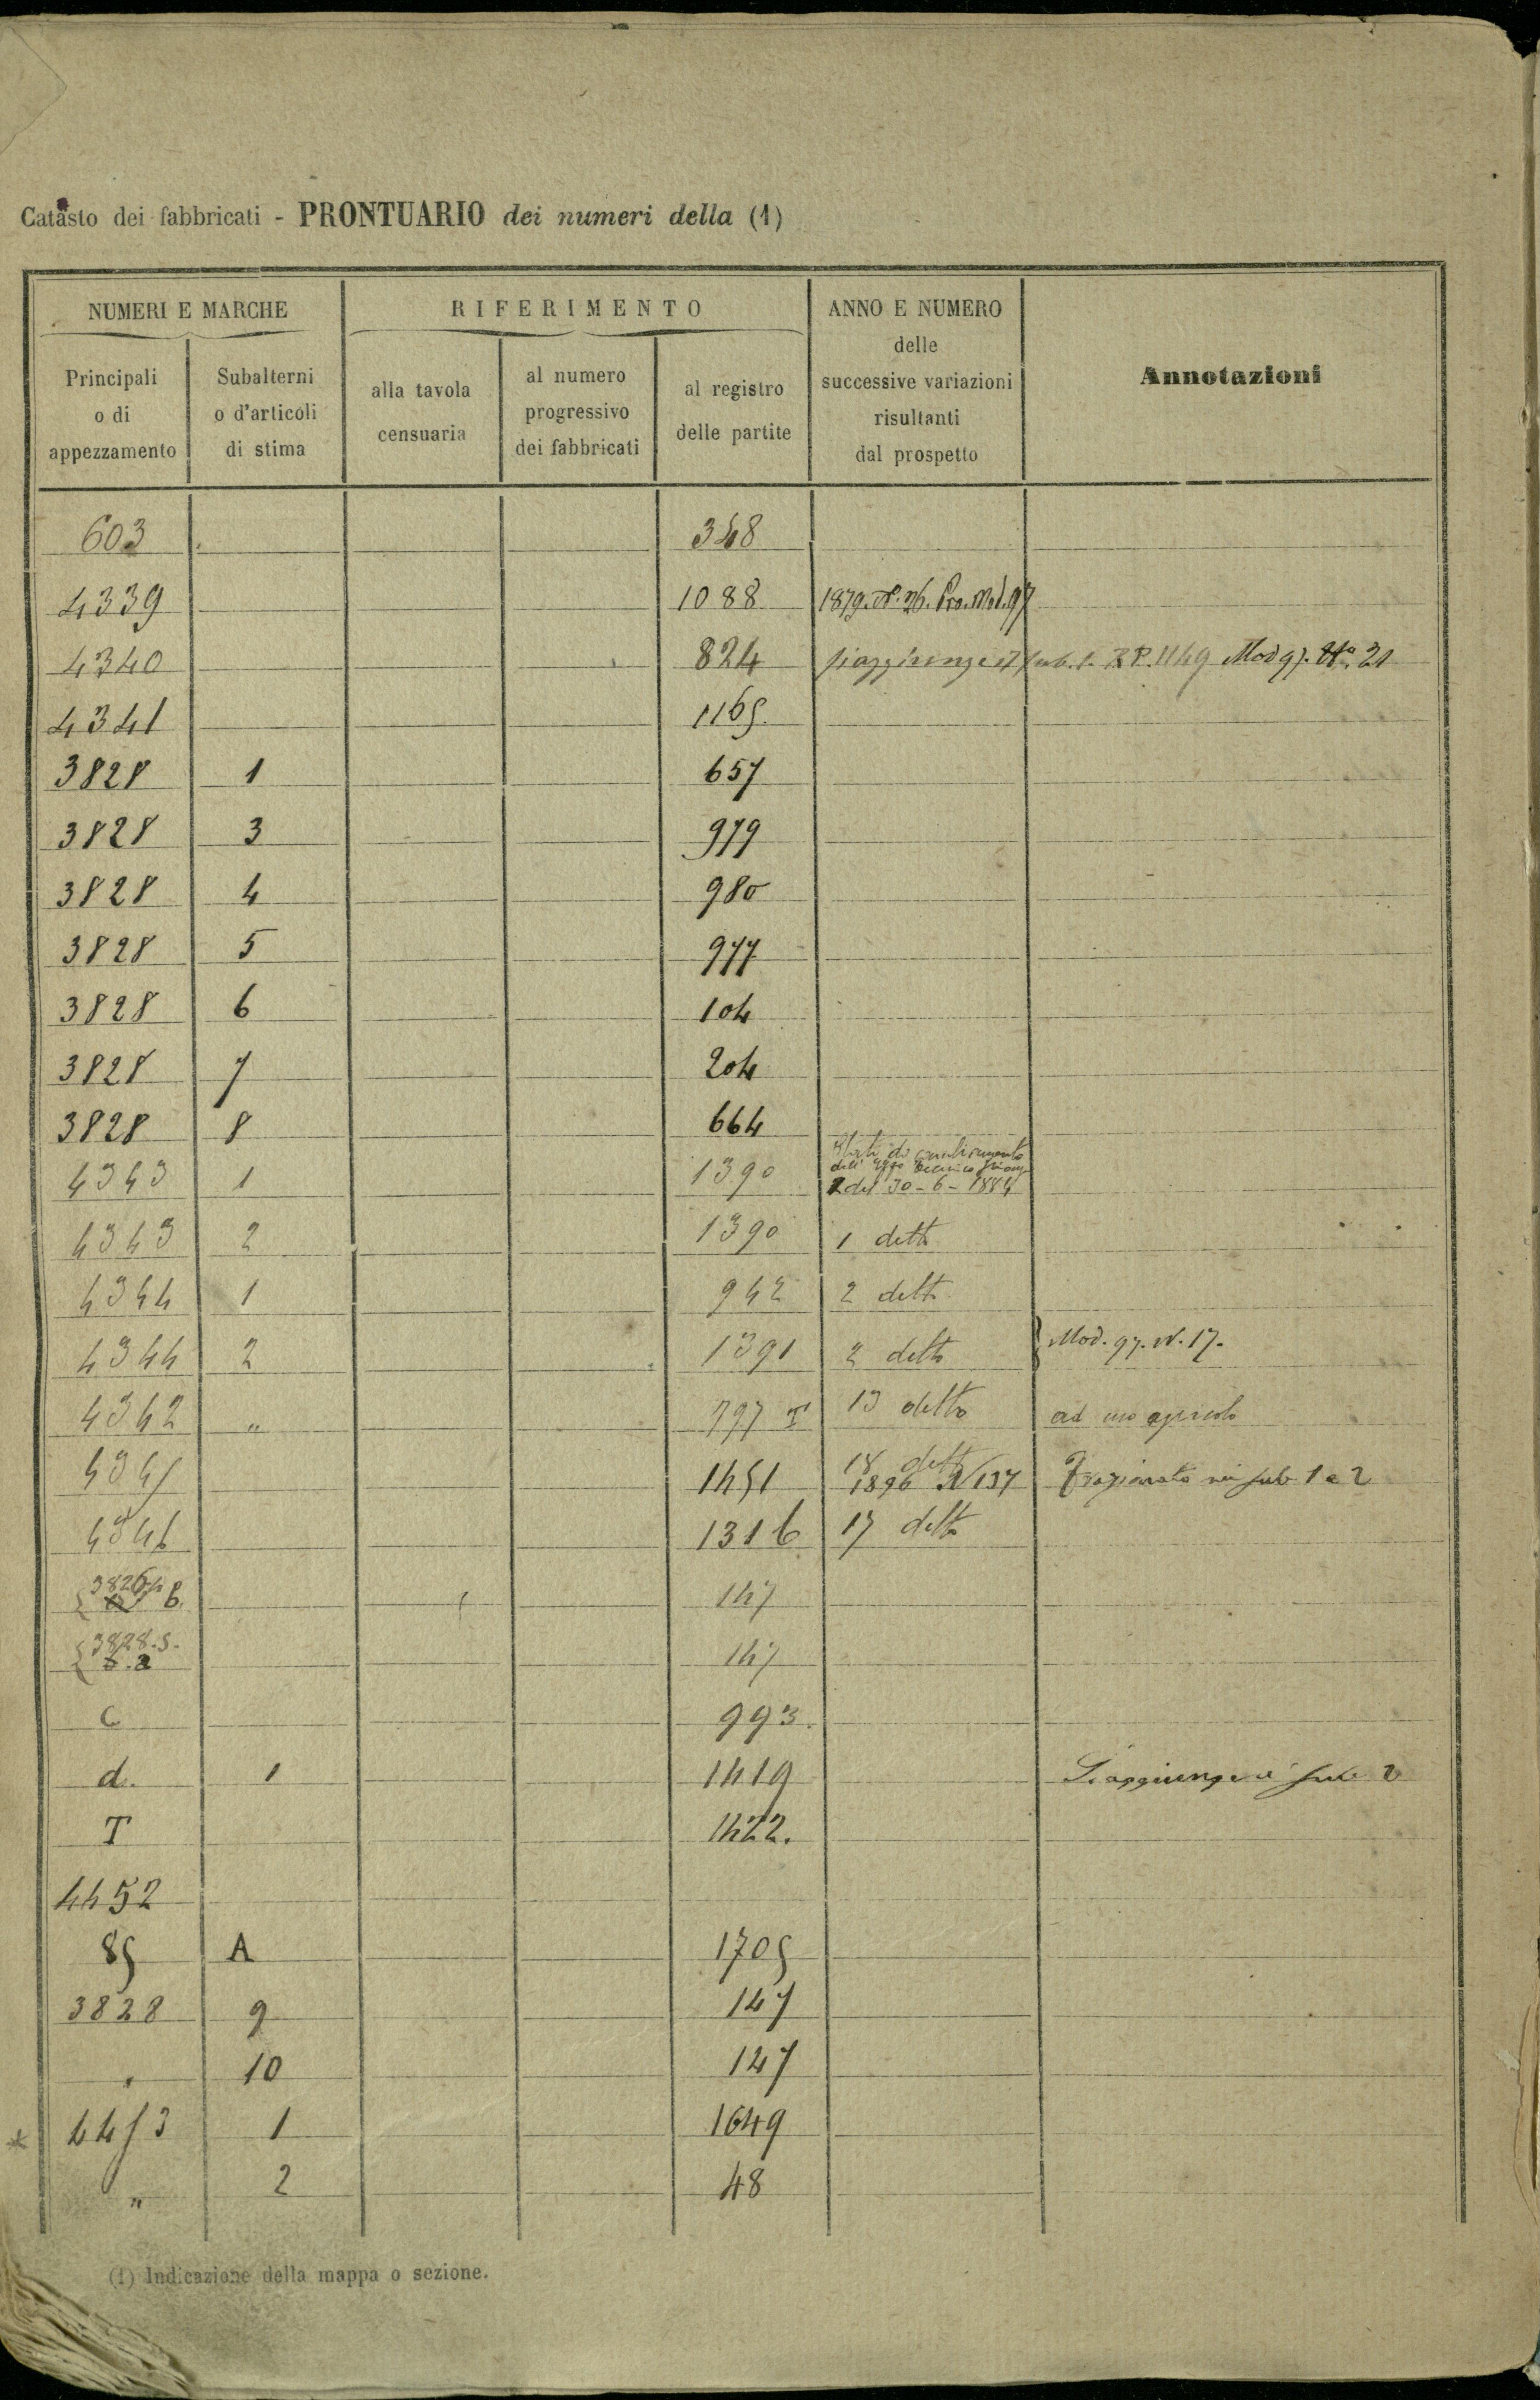 Catasto dei fabbricati - PRONTUARIO dei numeri della (1)
NUMERI E MARCHE
RIFERIMENTO
ANNO E NUMERO delle successive variazioni risultanti dal prospetto
Annotazioni
Principali o di appezzamento
Subalterni o d'articoli di stima
alla tavola censuaria
al numero progressivo dei fabbricati
al registro delle partite
603 348
4339 1088 1879. N. 26. Pro. Mod. 97
4340 824 si aggiunge il sub. 1. R P. 1149 Mod 97. N.º 21
4341 1165
3828 1 657
3828 3 979
3828 4 980
3828 5 977
3828 6 104
3828 7 204
3828 8 664
4343 1 1390 Stati di
dell'
2 del 30-6-1884
4343 2 1390 1 detto
4344 1 942 2 detto
4344 2 1391 2 detto Mod. 97. N. 17.
4342 " 797 T 13 detto ad uso agricolo
4345 1451 18 detto
1896 N 137 Frazionato nei sub 1 e 2
4346 1316 17 detto
3826 B. 147
3828.5. a 147
C 993.
d. 1 1419 Si aggiunge il sub 2
T 1422.
4452
85 A 1705
3828 9 147
" 10 147
* 4453 1 1649
" 2 48
(1) Indicazione della mappa o sezione.